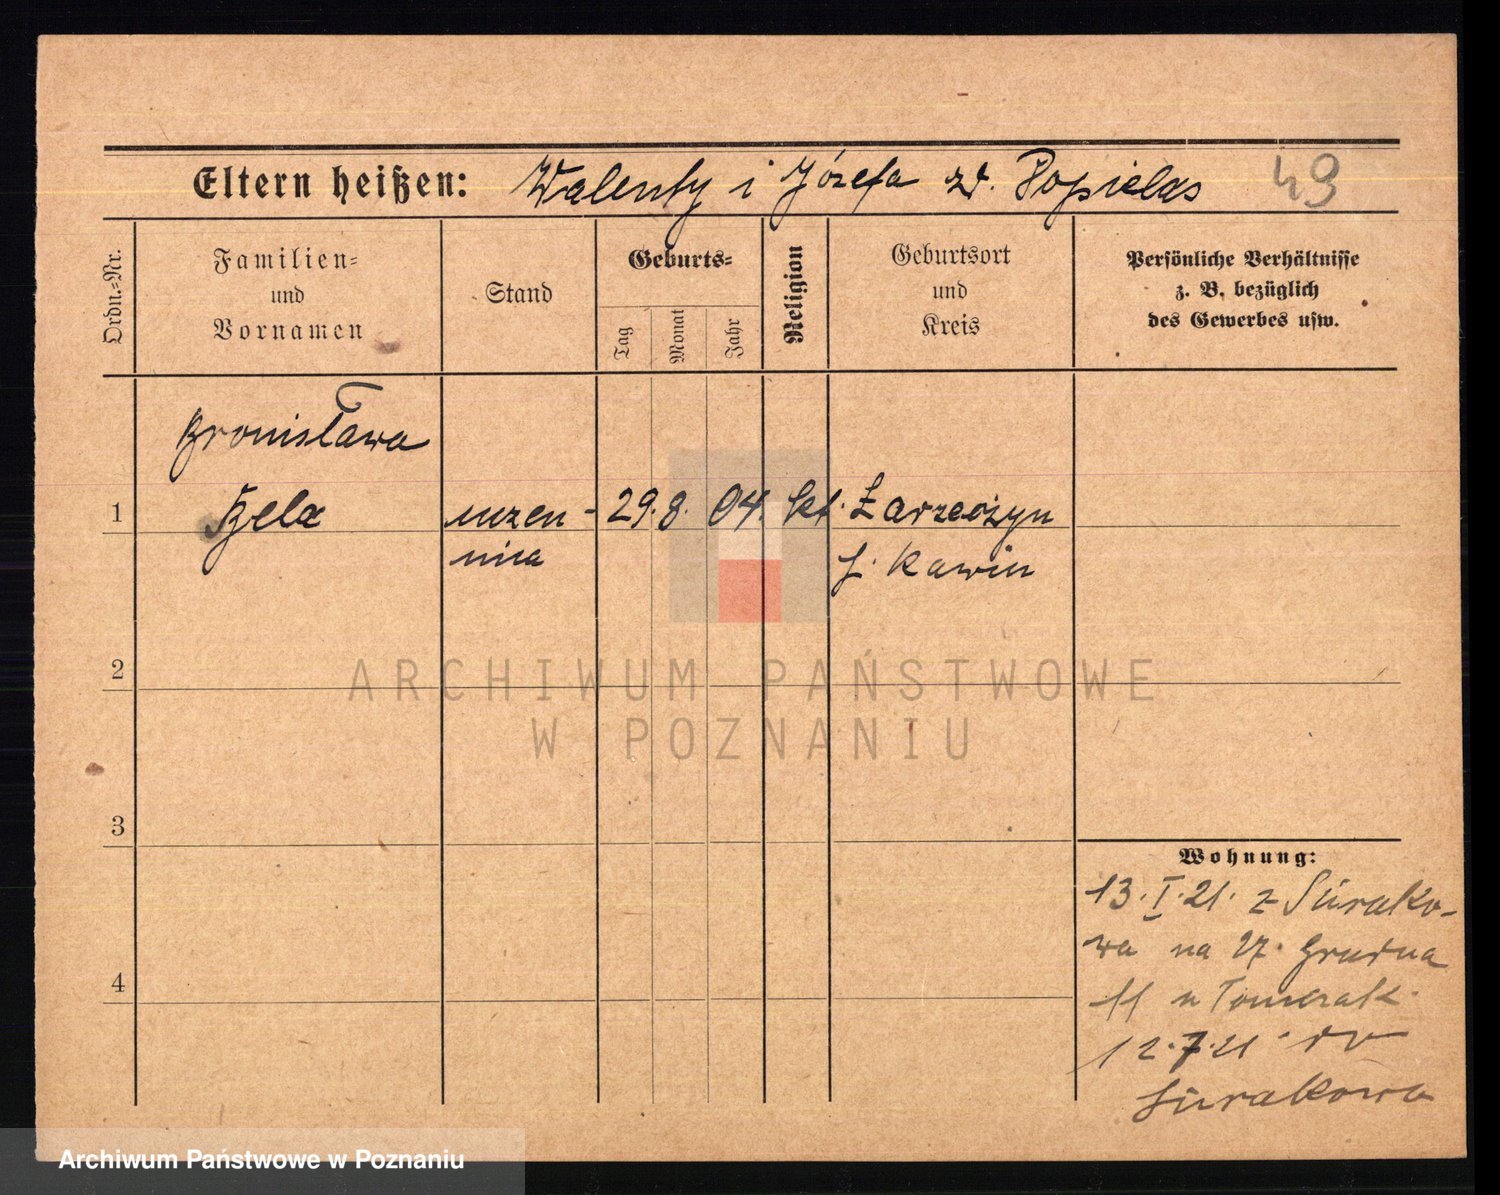 Eltern heißen: Walenty i Józefa zd. Popielas 49
Ordn.-Nr.
Familien=
und
Vornamen
Stand
Geburts=
Tag
Monat
Jahr
Religion
Geburtsort
und
Kreis
Persönliche Verhältnisse
z. B. bezüglich
des Gewerbes usw.
Bronisława
1 Bela uczen- 29. 8. 04. kt.
nica
p. Rawicz
2
ARCHIWUM PAŃSTWOWE
W POZNANIU
3
4
Wohnung:
13.I.21. z Sierako-
wa na 27. Grudnia
11 u
12.7.21 do
Sierakowa
Archiwum Państwowe w Poznaniu